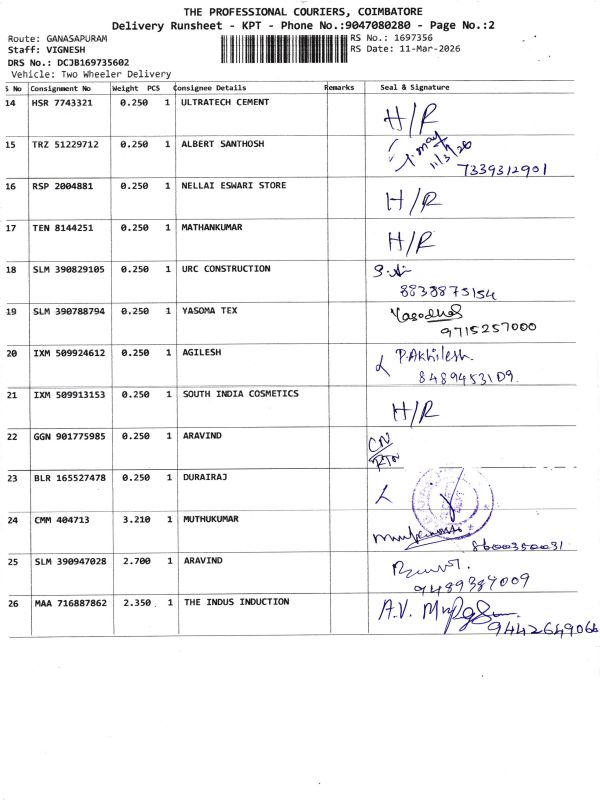 THE PROFESSIONAL COURIERS, COIMBATORE
Delivery Runsheet - KPT - Phone No.:9047080280 - Page No.:2
Route: GANASAPURAM RS No.: 1697356
Staff: VIGNESH RS Date: 11-Mar-2026
DRS No.: DCJB169735602
Vehicle: Two Wheeler Delivery
S No Consignment No Weight PCS Consignee Details Remarks Seal & Signature
14 HSR 7743321 0.250 1 ULTRATECH CEMENT H/R
15 TRZ 51229712 0.250 1 ALBERT SANTHOSH
11/3/26
7339312901
16 RSP 2004881 0.250 1 NELLAI ESWARI STORE H/R
17 TEN 8144251 0.250 1 MATHANKUMAR H/R
18 SLM 390829105 0.250 1 URC CONSTRUCTION
8838875154
19 SLM 390788794 0.250 1 YASOMA TEX Yasodha
9715257000
20 IXM 509924612 0.250 1 AGILESH P.Akhilesh
8489453109
21 IXM 509913153 0.250 1 SOUTH INDIA COSMETICS H/R
22 GGN 901775985 0.250 1 ARAVIND CN/
RTN
23 BLR 165527478 0.250 1 DURAIRAJ
24 CMM 404713 3.210 1 MUTHUKUMAR
8600350031
25 SLM 390947028 2.700 1 ARAVIND
9489384009
26 MAA 716887862 2.350 1 THE INDUS INDUCTION A.V.
9442649066